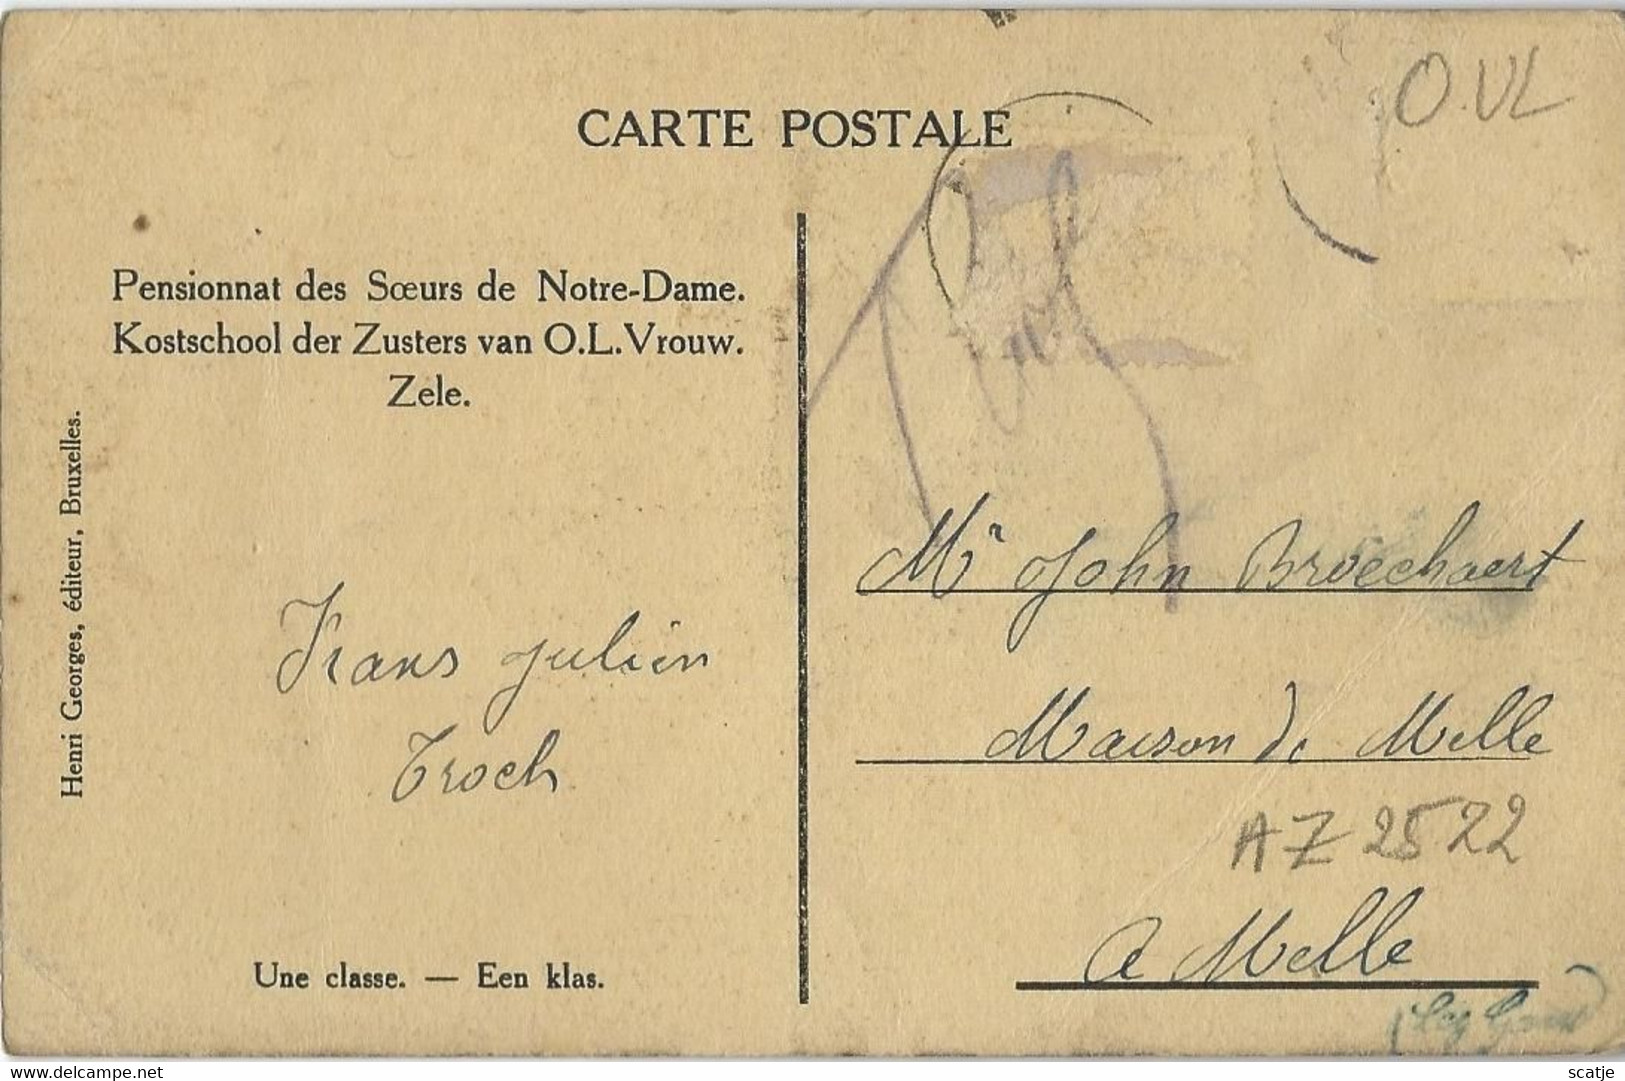 O.VL
CARTE POSTALE
Pensionnat des Sœurs de Notre-Dame.
Kostschool der Zusters van O.L.Vrouw.
Zele.
Henri Georges, éditeur, Bruxelles.
Frans Julien
Troch
Une classe. — Een klas.
Mr John Broeckaert
Maison de Melle
AZ 2522
a Melle
delcampe.net
scatje